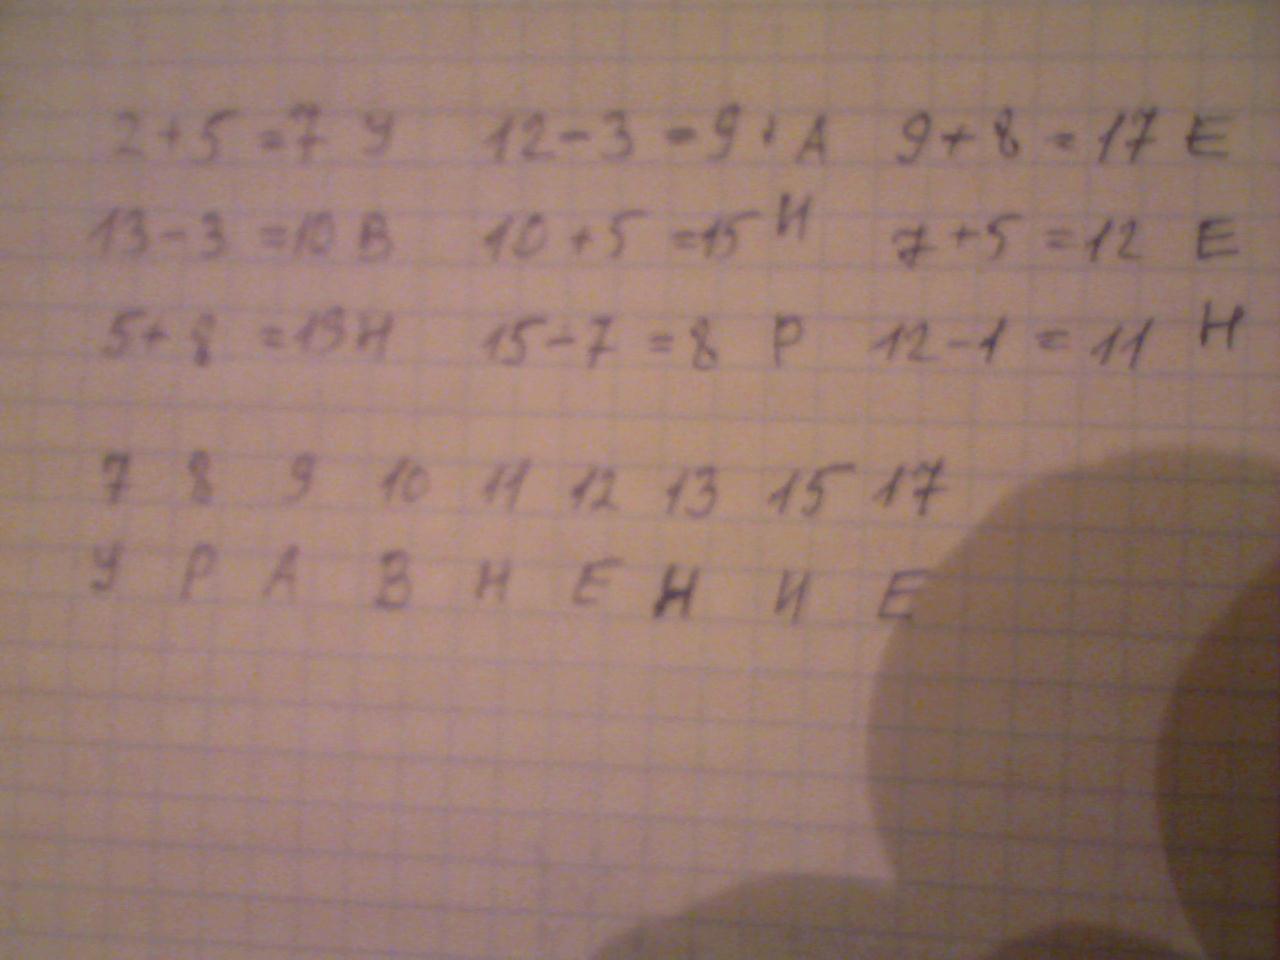 2+5=7 У 12-3=9 А 9+8=17 Е
13-3=10 В 10+5=15 И 7+5=12 Е
5+8=13 Н 15-7=8 Р 12-1=11 Н
7 8 9 10 11 12 13 15 17
У Р А В Н Е Н И Е